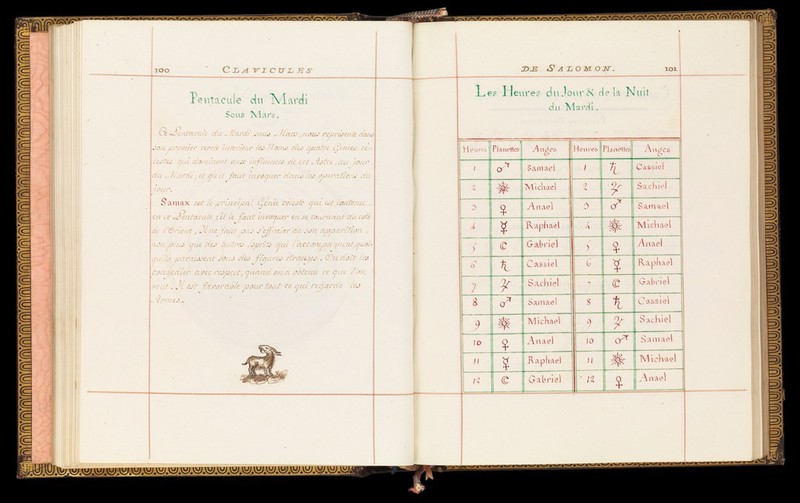 100
CLAVICULES
Pentacule du Mardi
Sous Mars.
Ce Pentacule du Mardi sous Mars, nous représente dans
son premier cercle intérieur les Noms des quatre Génies cé-
lestes qui dominent aux influences de cet Astre, au jour
du Mardi, et qu'il faut invoquer dans les opérations du
jour.
Samax est le principal Génie céleste qui est contenue
en ce Pentacule; il le faut invoquer en se tournant du coté
de l'Orient. Il ne faut pas s'effraïer de son apparition,
non plus que des autres esprits qui l'accompagnent, quoi-
qu'ils paroissent sous des figures étranges. On doit les
congédier avec respect, quand on a obtenu ce que l'on
veut. Il est favorable pour tout ce qui regarde les
Armes.
DE SALOMON.
101
Les Heures du Jour & de la Nuit
du Mardi.
Heures Planettes Anges Heures Planettes Anges
1 ♂ Samael 1 ♄ Cassiel
2 ☀ Michael 2 ♃ Sachiel
3 ♀ Anael 3 ♂ Samael
4 ☿ Raphael 4 ☀ Michael
5 ☾ Gabriel 5 ♀ Anael
6 ♄ Cassiel 6 ☿ Raphael
7 ♃ Sachiel 7 ☾ Gabriel
8 ♂ Samael 8 ♄ Cassiel
9 ☀ Michael 9 ♃ Sachiel
10 ♀ Anael 10 ♂ Samael
11 ☿ Raphael 11 ☀ Michael
12 ☾ Gabriel 12 ♀ Anael